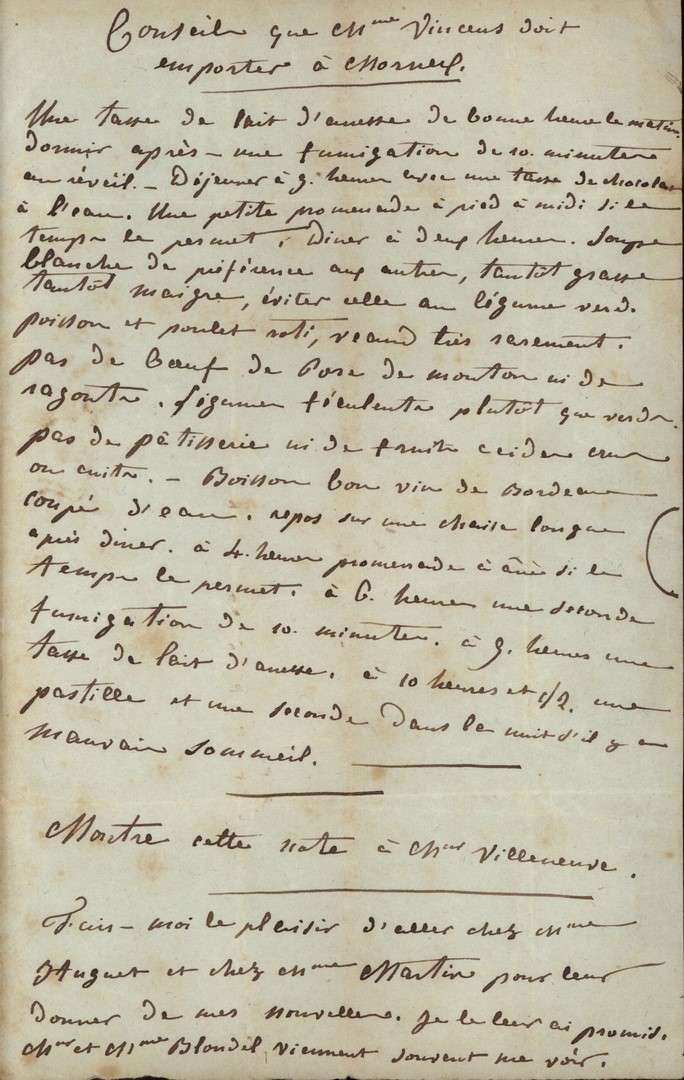 Conseils que Mme Vincens doit
emporter à Morneix.
Une tasse de lait d'anesse de bonne heure le matin.
dormir après – une fumigation de 10. minutes
au réveil. – Déjeuner à 9. heures avec une tasse de chocolat
à l'eau. Une petite promenade à pied à midi si le
temps le permet. Diner à deux heures. Soupe
blanche de préférence aux autres, tantôt grasse
tantôt maigre, éviter celle au légume verd.
poisson et poulet roti, veaud très rarement.
pas de Bœuf de Porc de mouton ni de
ragoutre. légumes féculents plutôt que verds.
pas de pâtisserie ni de fruits acides crus
ou cuits. – Boisson bon vin de Bordeaux
coupé d'eau. repos sur une chaise longue
après diner. à 4. heures promenade à âne si le
temps le permet. à 6. heures une seconde
fumigation de 10. minutes. à 9. heures une
tasse de lait d'anesse. à 10 heures et 1/2. une
pastille et une seconde dans la nuit s'il y a
mauvais sommeil.
Montre cette note à Mr Villeneuve.
Fais-moi le plaisir d'aller chez Mme
Huguet et chez Mme Martin pour leur
donner de mes nouvelles. Je le leur ai promis.
Mr et Mme Blondel viennent souvent me voir.